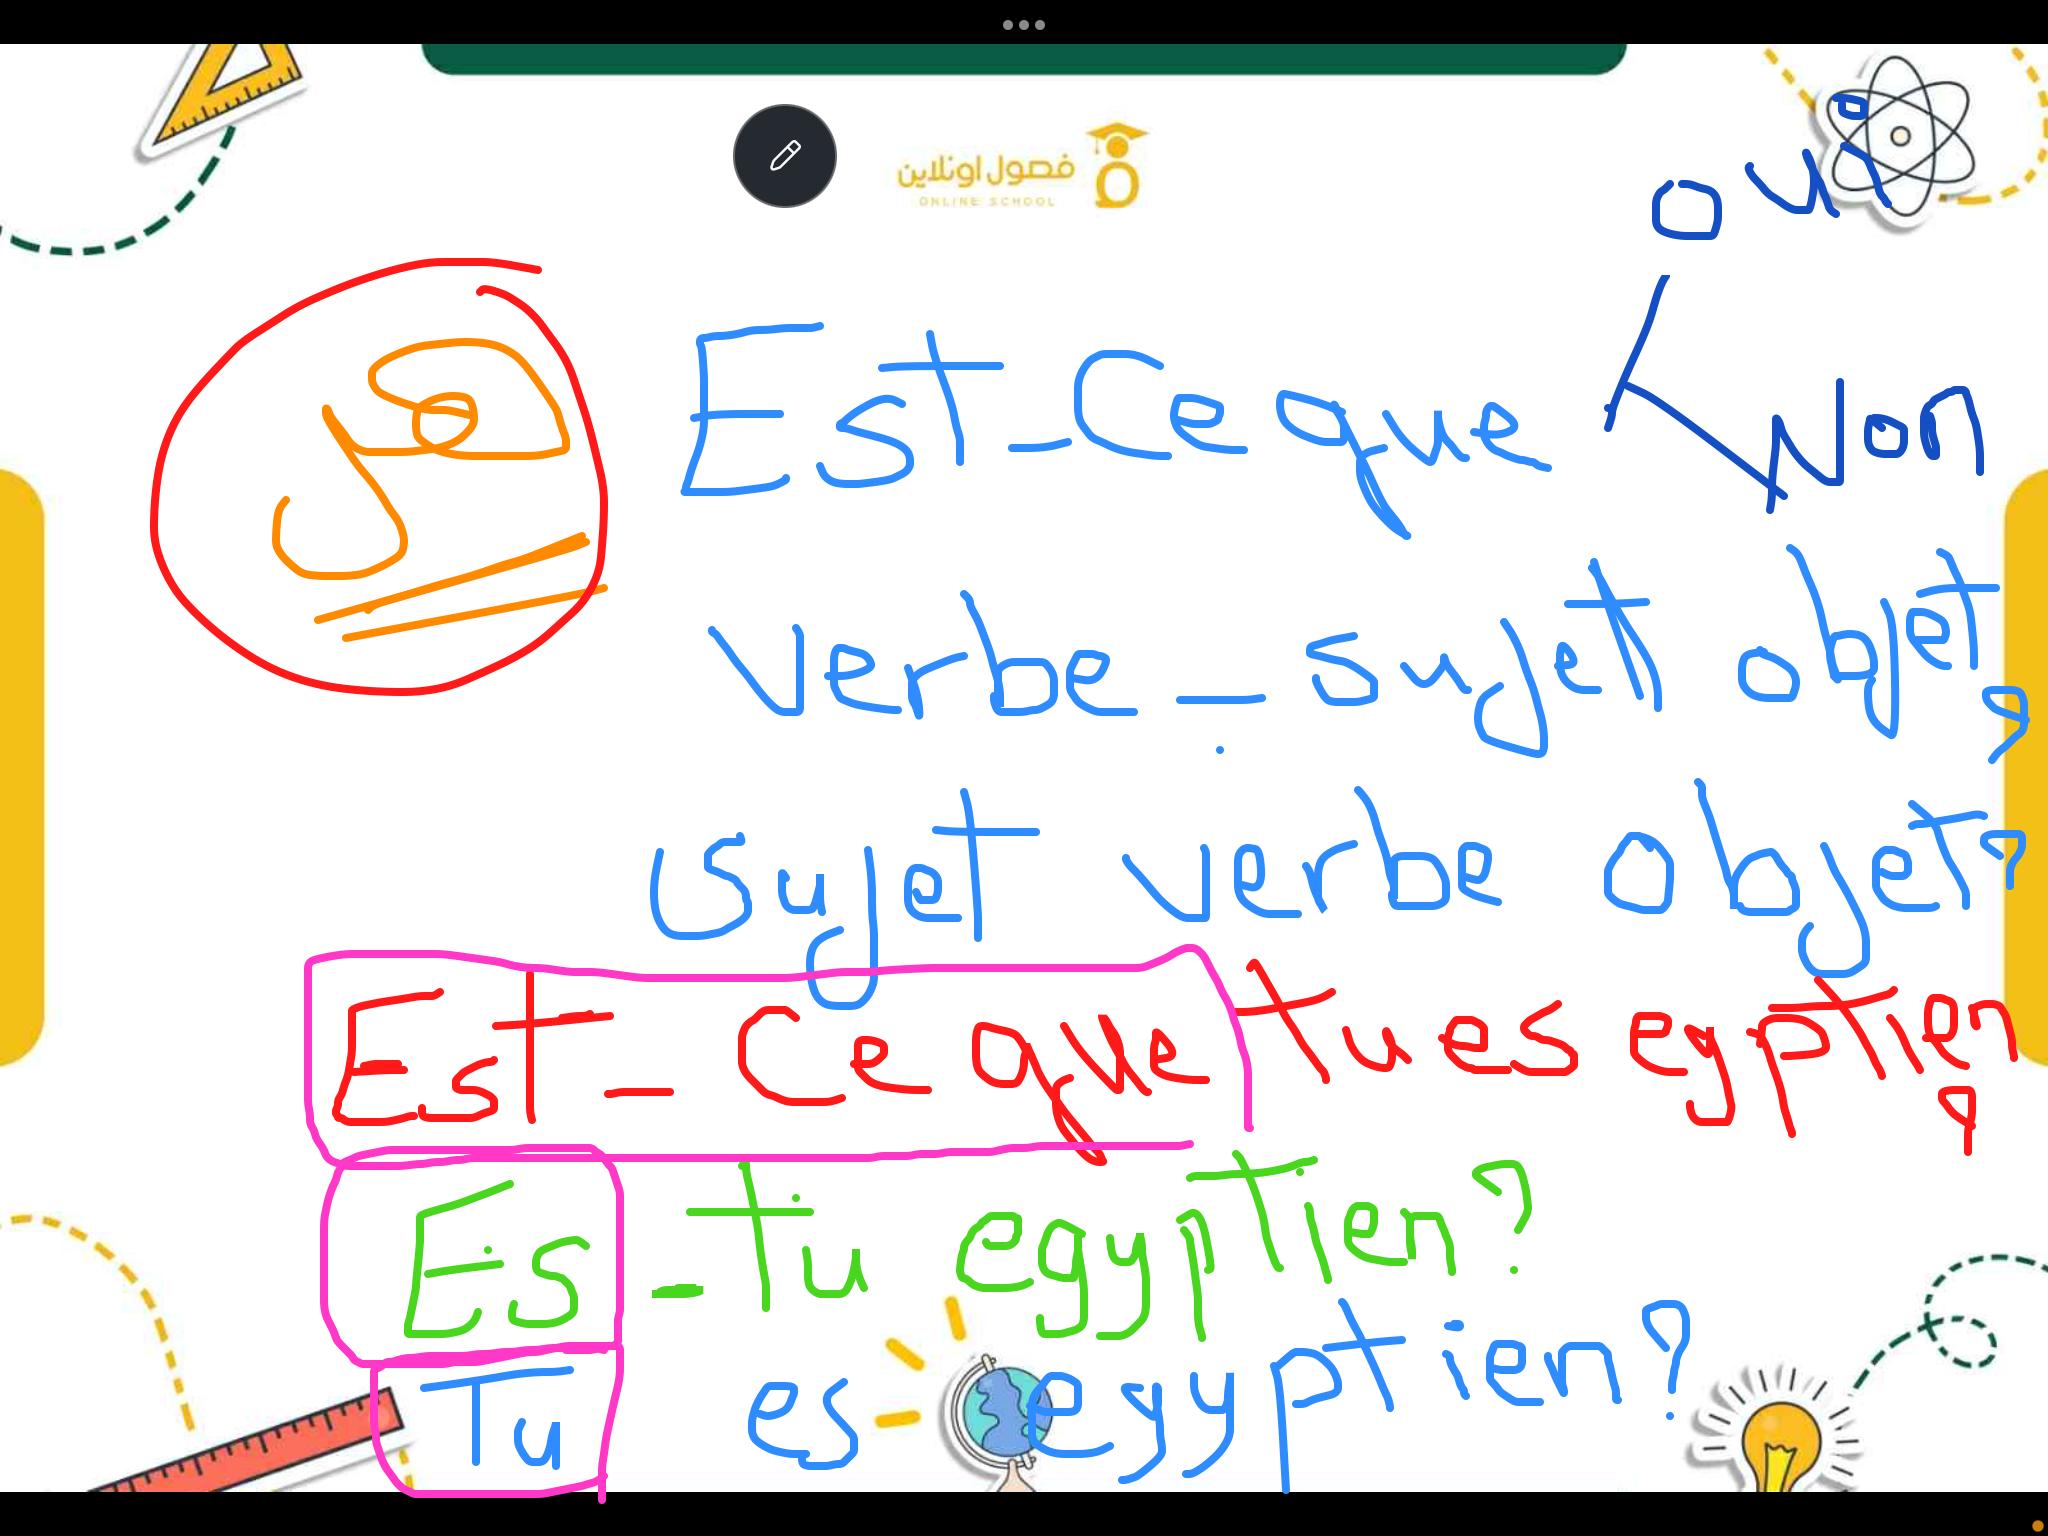 فصول اونلاين
ONLINE SCHOOL
oui
هل
Est-Ce que
Non
verbe - sujet objet ?
Sujet verbe objet ?
Est-Ce que tu es egyptien ?
Es-tu egyptien ?
Tu es egyptien ?